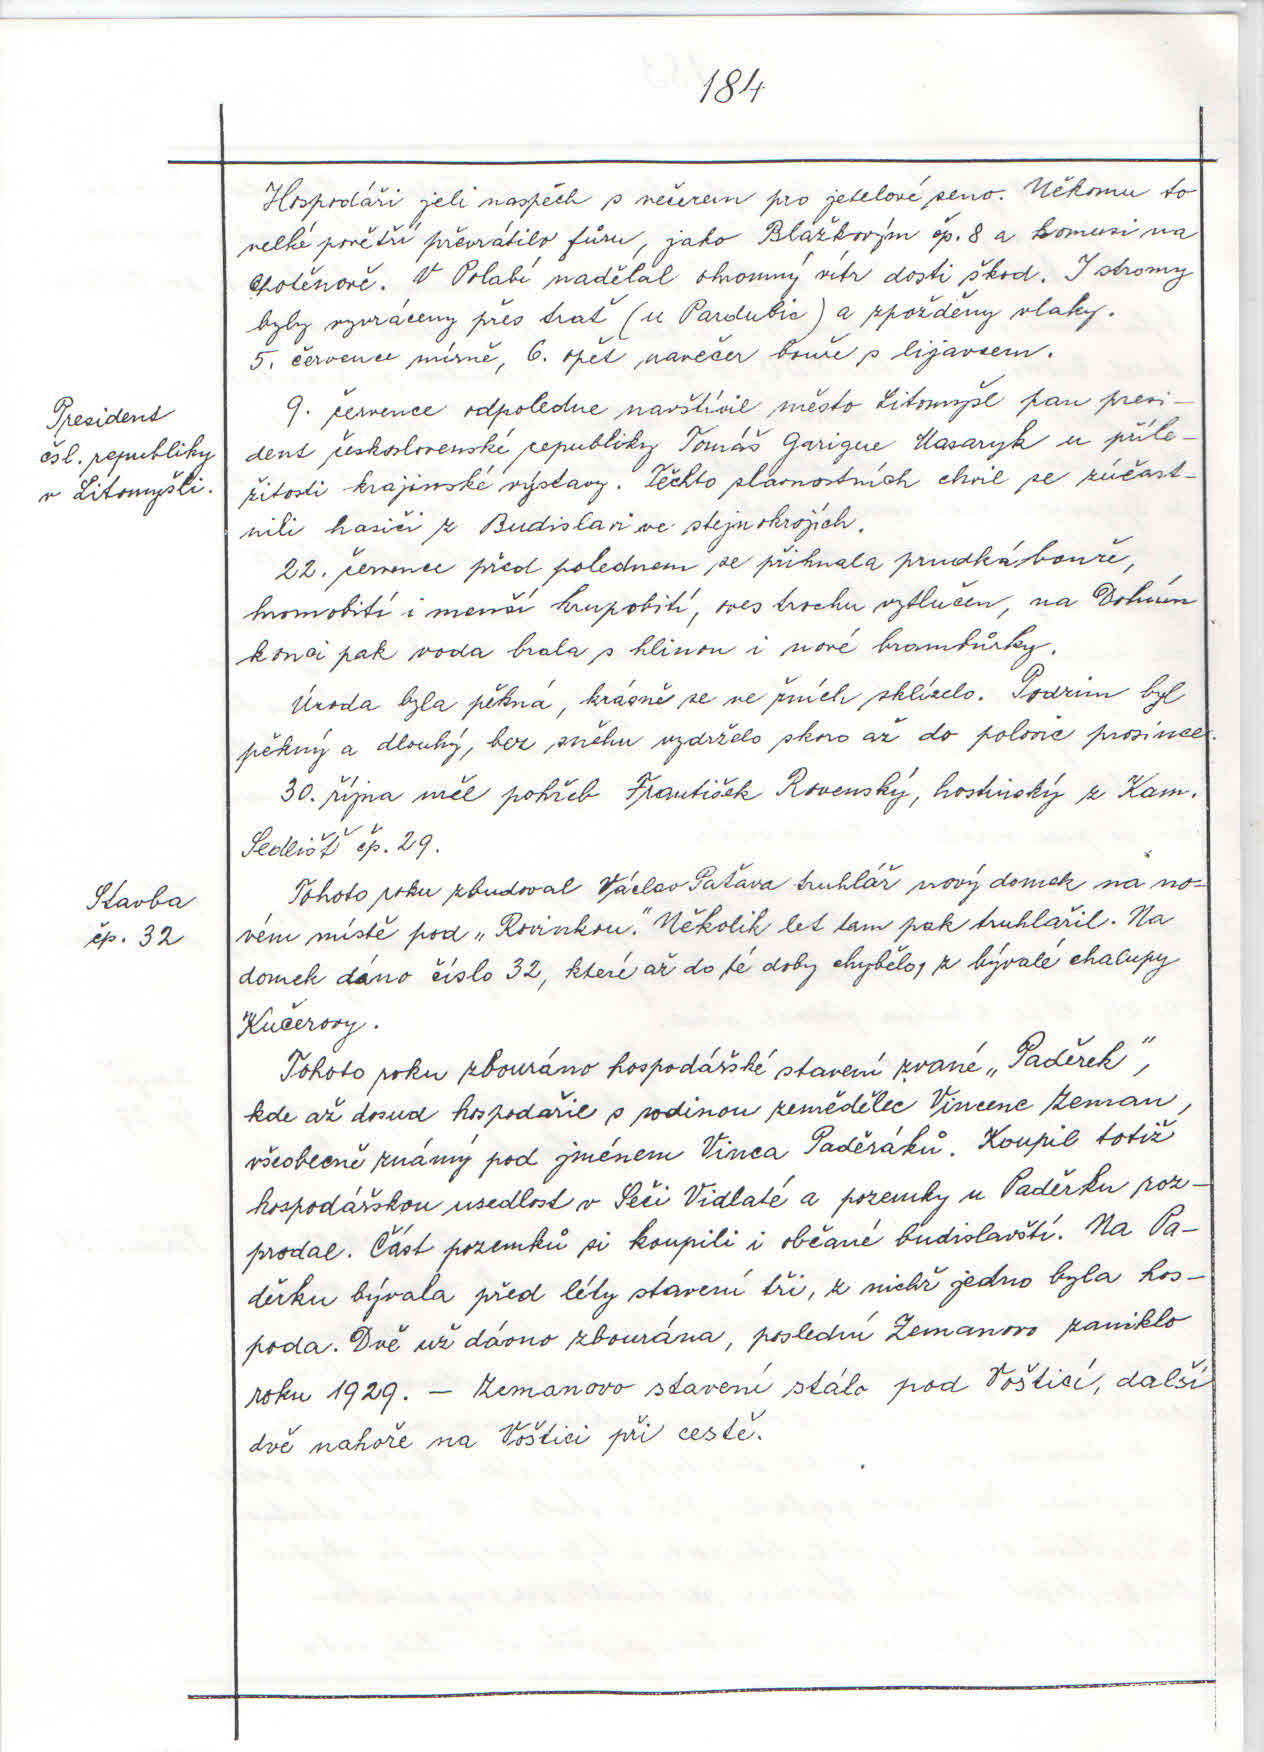 184
Hospodáři jeli naspěch s večerem pro jetelové seno. Někomu to
velké povětří převrátilo fůru, jako Blažkovým čp. 8 a komusi na
Chotěnově. V Polabí nadělal ohromný vítr dosti škod. I stromy
byly vyvráceny přes trať (u Pardubic) a zpožděny vlaky.
5. července mírně, 6. opět navečer bouře s lijavcem.
President
čsl. republiky
v Litomyšli.
9. července odpoledne navštívil město Litomyšl pan presi-
dent československé republiky Tomáš Garigue Masaryk u příle-
žitosti krajinské výstavy. Těchto slavnostních chvil se zúčast-
nili hasiči z Budislavi ve stejnokrojích.
22. července před polednem se přihnala prudká bouře,
hromobití i menší krupobití, oves trochu vytlučen, na Dolním
konci pak voda brala s hlinou i nové brambůrky.
Úroda byla pěkná, krásně se ve žních sklízelo. Podzim byl
pěkný a dlouhý, bez sněhu vydrželo skoro až do polovic prosince.
30. října měl pohřeb František Rovenský, hostinský z Kam.
Sedlišť čp. 29.
Stavba
čp. 32
Tohoto roku zbudoval Václav Paťava truhlář nový domek na no-
vém místě pod „Rovinkou." Několik let tam pak truhlařil. Na
domek dáno číslo 32, které až do té doby chybělo, z bývalé chalupy
Kučerovy.
Tohoto roku zbouráno hospodářské stavení zvané „Paděrek",
kde až dosud hospodařil s rodinou zemědělec Vincenc Zeman,
všeobecně známý pod jménem Vinca Paděráků. Koupil totiž
hospodářskou usedlost v Seči Vidlaté a pozemky u Paděrku roz-
prodal. Část pozemků si koupili i občané budislavští. Na Pa-
děrku bývala před léty stavení tři, z nichž jedno byla hos-
poda. Dvě už dávno zbourána, poslední Zemanovo zaniklo
roku 1929. – Zemanovo stavení stálo pod Vošticí, další
dvě nahoře na Voštici při cestě.